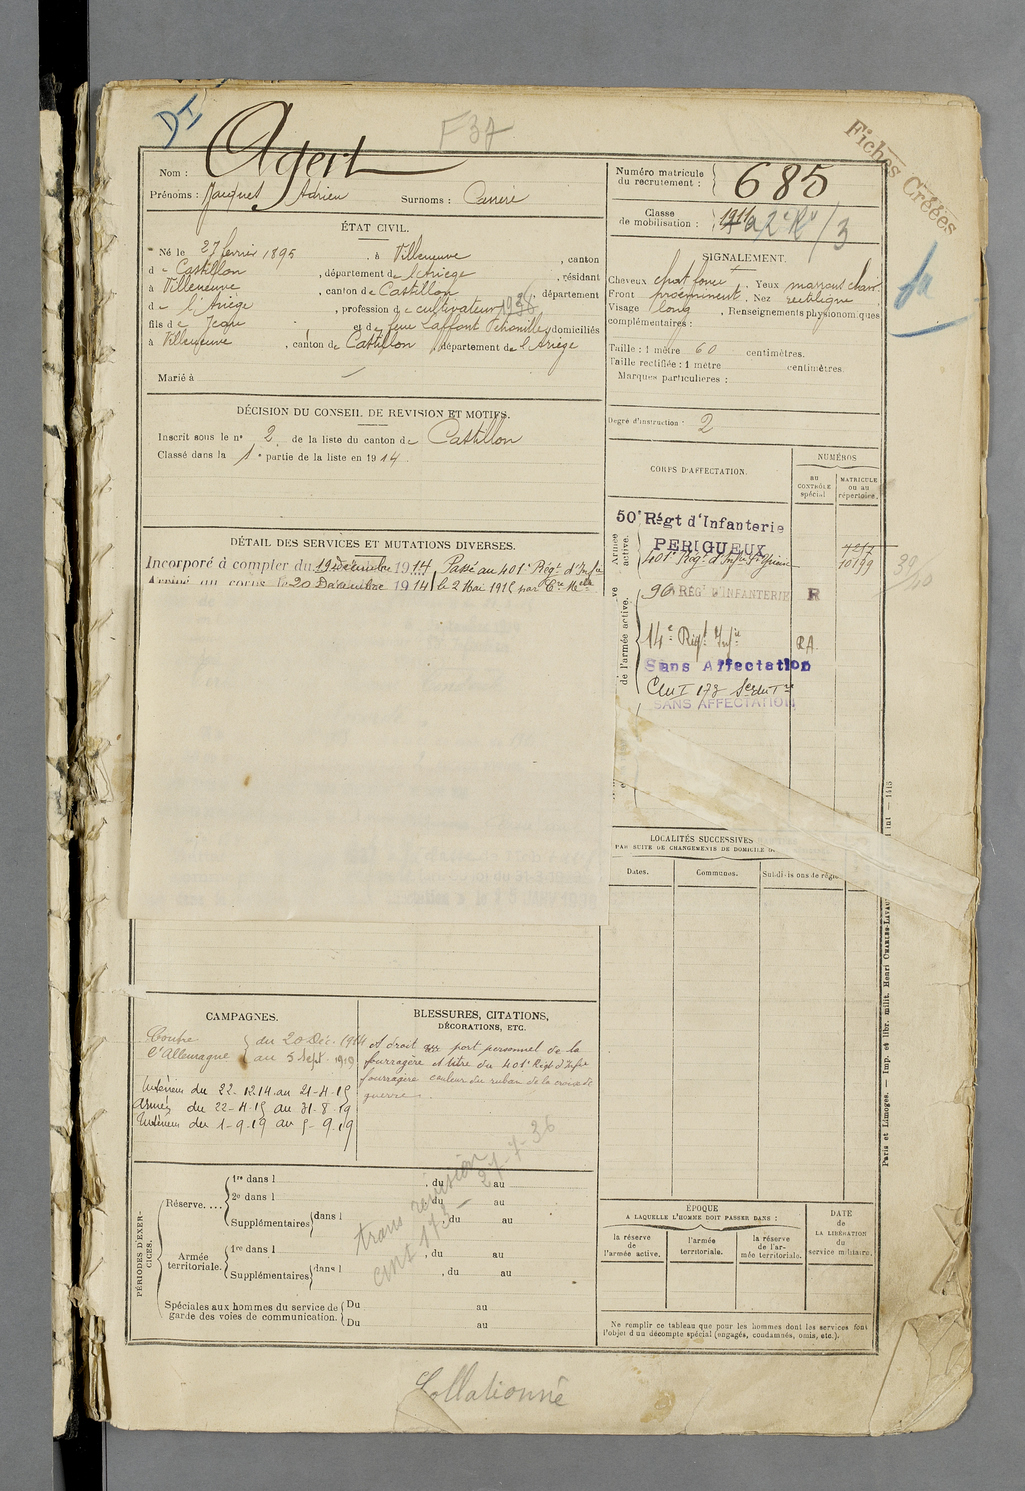 DI
F 37
Fiches Créées
Nom : Agert
Prénoms : Jacques Adrien Surnoms :
Numéro matricule du recrutement : 685
Classe de mobilisation : 1914
ÉTAT CIVIL.
Né le 27 février 1895, à Villeneuve, canton
de Castillon, département de l'Ariège, résidant
à Villeneuve, canton de Castillon, département
de l'Ariège, profession de cultivateur
fils de Jean et de feue Laffont domiciliés
à Villeneuve, canton de Castillon, département de l'Ariège
Marié à
SIGNALEMENT.
Cheveux chat foncé. Yeux marrons clairs
Front proéminent, Nez rectiligne
Visage long, Renseignements physionomiques
complémentaires :
Taille : 1 mètre 60 centimètres.
Taille rectifiée : 1 mètre centimètres.
Marques particulières :
Degré d'instruction : 2
DÉCISION DU CONSEIL DE REVISION ET MOTIFS.
Inscrit sous le n° 2 de la liste du canton de Castillon
Classé dans la 1e partie de la liste en 1914
CORPS D'AFFECTATION.
NUMÉROS
au CONTRÔLE spécial
MATRICULE ou au répertoire.
Armée active.
50e Régt d'Infanterie
PERIGUEUX
401e Régt d'Infie
10199
de l'armée active.
96 RÉGt D'INFANTERIE R
14e Régt Infie RA
Sans Affectation
CMI 173
SANS AFFECTATION
39/40
DÉTAIL DES SERVICES ET MUTATIONS DIVERSES.
Incorporé à compter du 19 décembre 1914 Passé au 401e Régt d'Infie
Arrivé au corps le 20 Décembre 1914 le 2 Mai 1915 par
LOCALITÉS SUCCESSIVES
PAR SUITE DE CHANGEMENTS DE DOMICILE
Dates. Communes. Subdivisions de régie
CAMPAGNES.
Contre l'Allemagne du 20 Déc. 1914 au 5 Sept. 1919
Intérieur du 22-12.14 au 21-4-15
Armées du 22-4-15 au 31-8-19
Intérieur du 1-9.19 au 5-9.19
BLESSURES, CITATIONS,
DÉCORATIONS, ETC.
A droit au port personnel de la
fourragère à titre du 401e Régt d'Infie
fourragère couleur du ruban de la croix de
guerre.
PÉRIODES D'EXERCICES.
Réserve....
1re dans l , du au
2e dans l du au
Supplémentaires dans l du au
Armée territoriale.
1re dans l , du au
Supplémentaires dans l , du au
Spéciales aux hommes du service de garde des voies de communication.
Du au
Du au
trans revision 27-7-36
CMI 173
ÉPOQUE
A LAQUELLE L'HOMME DOIT PASSER DANS :
la réserve de l'armée active.
l'armée territoriale.
la réserve de l'armée territoriale.
DATE de LA LIBÉRATION du service militaire.
Ne remplir ce tableau que pour les hommes dont les services font
l'objet d'un décompte spécial (engagés, condamnés, omis, etc.).
Paris et Limoges. — Imp. et libr. milit. Henri CHARLES-LAVAU
Collationné